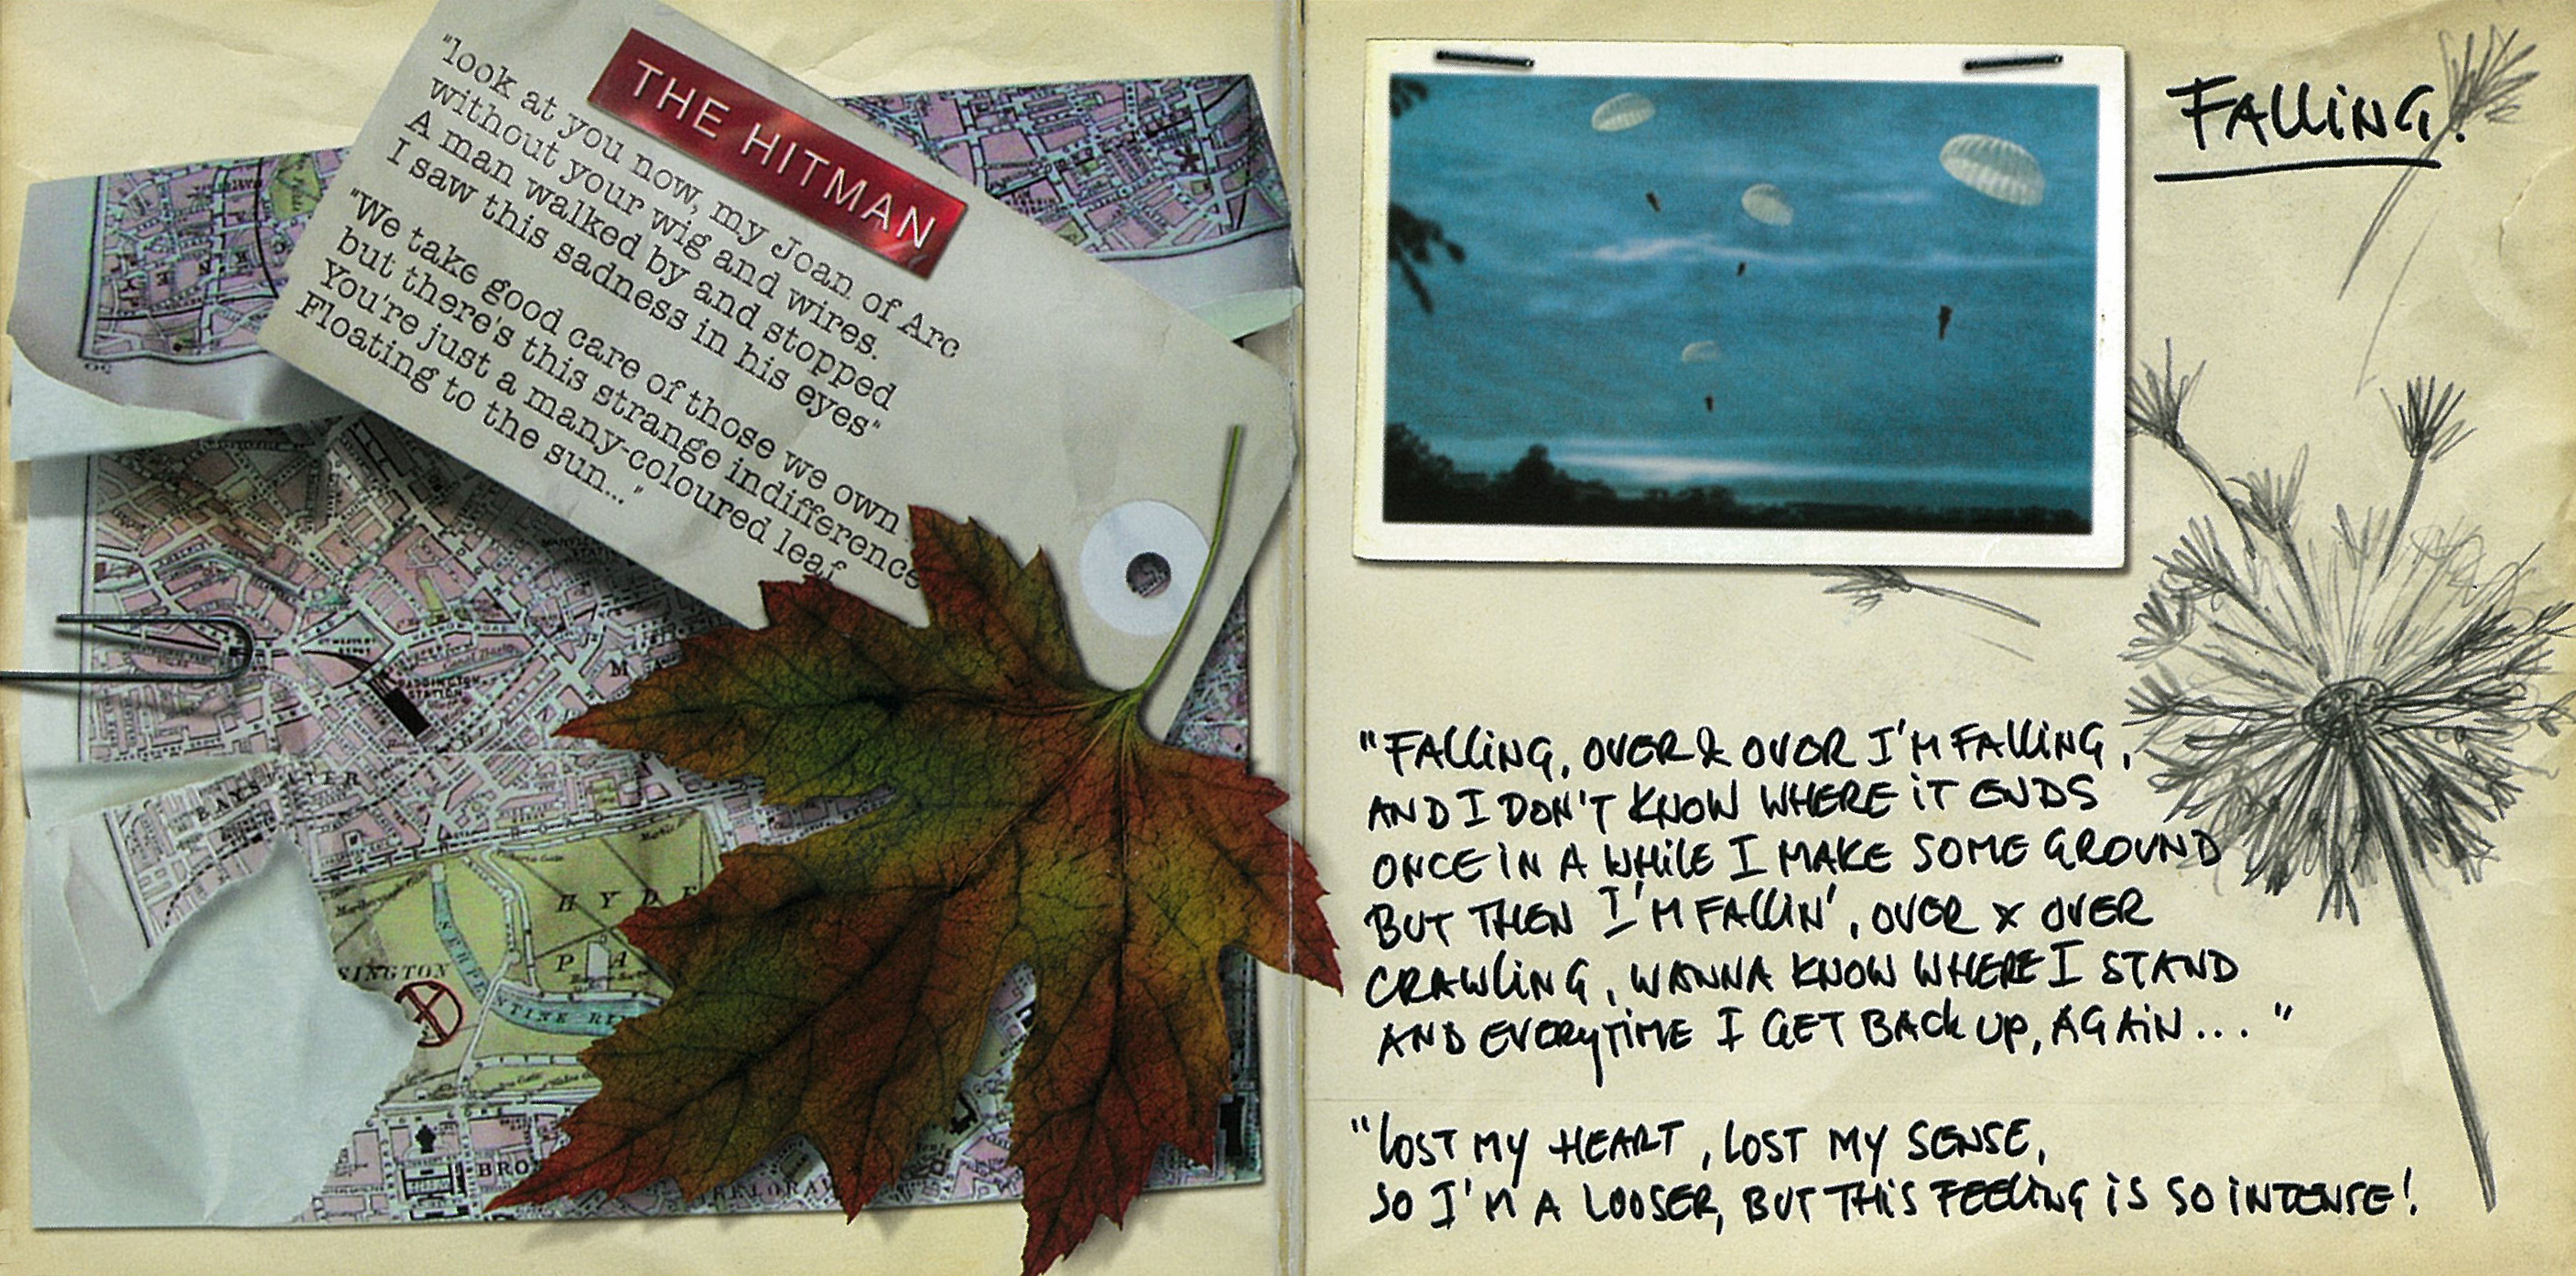 THE HITMAN
"look at you now, my Joan of Arc
without your wig and wires.
A man walked by and stopped
I saw this sadness in his eyes"
"We take good care of those we own
but there's this strange indifference
You're just a many-coloured leaf
Floating to the sun..."
PADDINGTON
STATION
BAYSWATER
HYDE
PA
SINGTON
SERPENTINE RI
BRO
FALLING!
"FALLING, OVER & OVER I'M FALLING,
AND I DON'T KNOW WHERE IT ENDS
ONCE IN A WHILE I MAKE SOME GROUND
BUT THEN I'M FALLIN', OVER & OVER
CRAWLING, WANNA KNOW WHERE I STAND
AND EVERYTIME I GET BACK UP, AGAIN... "
"LOST MY HEART, LOST MY SENSE,
SO I'M A LOOSER, BUT THIS FEELING IS SO INTENSE!